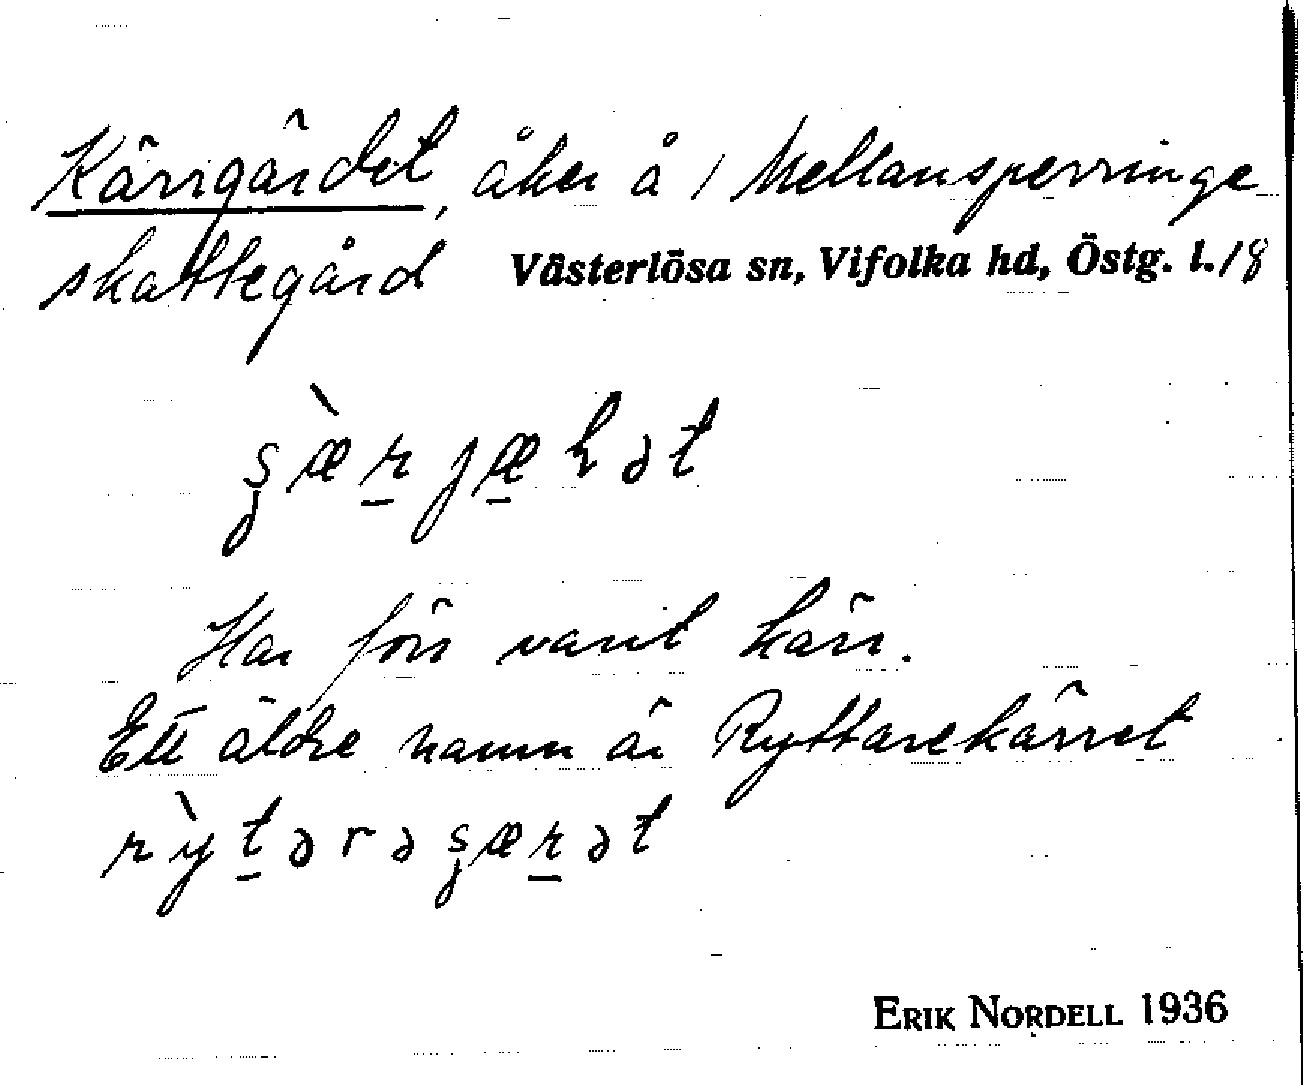 Kärrgärdet, åker å 1 Mellansperringe
skattegård Västerlösa sn, Vifolka hd, Östg. l. 18
Har förr varit kärr.
Ett äldre namn är Ryttarekärret
ERIK NORDELL 1936